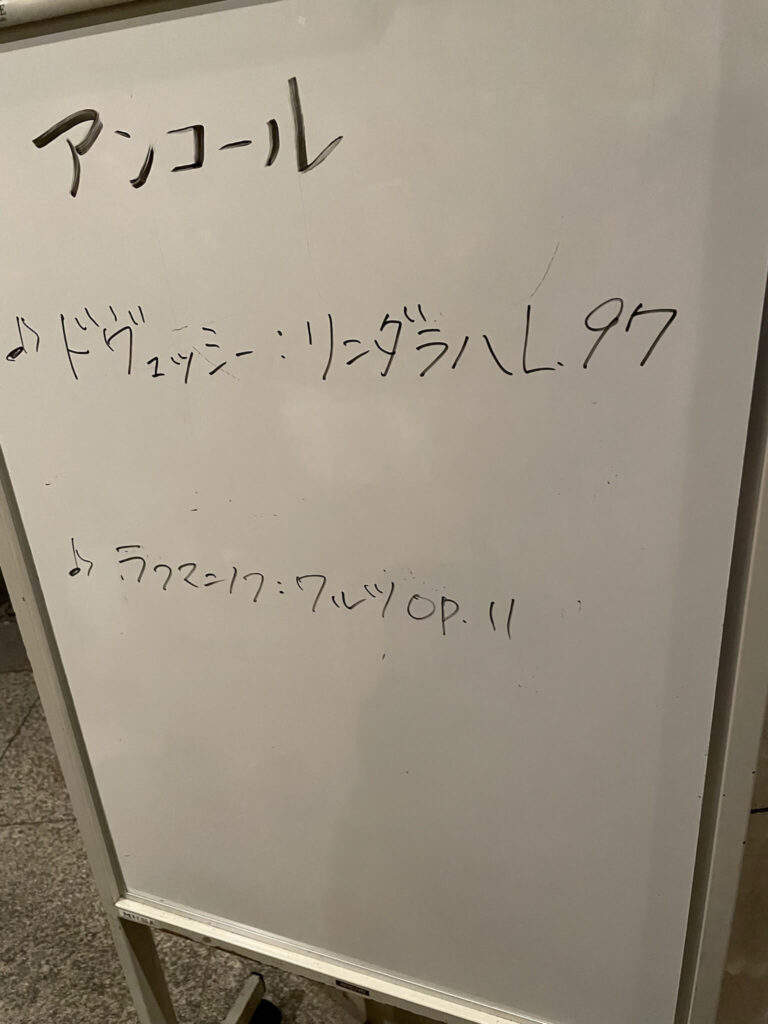 アンコール
♪ ドヴュッシー:リンダラハ L.97
♪ ラフマニノフ:ワルツ OP.11